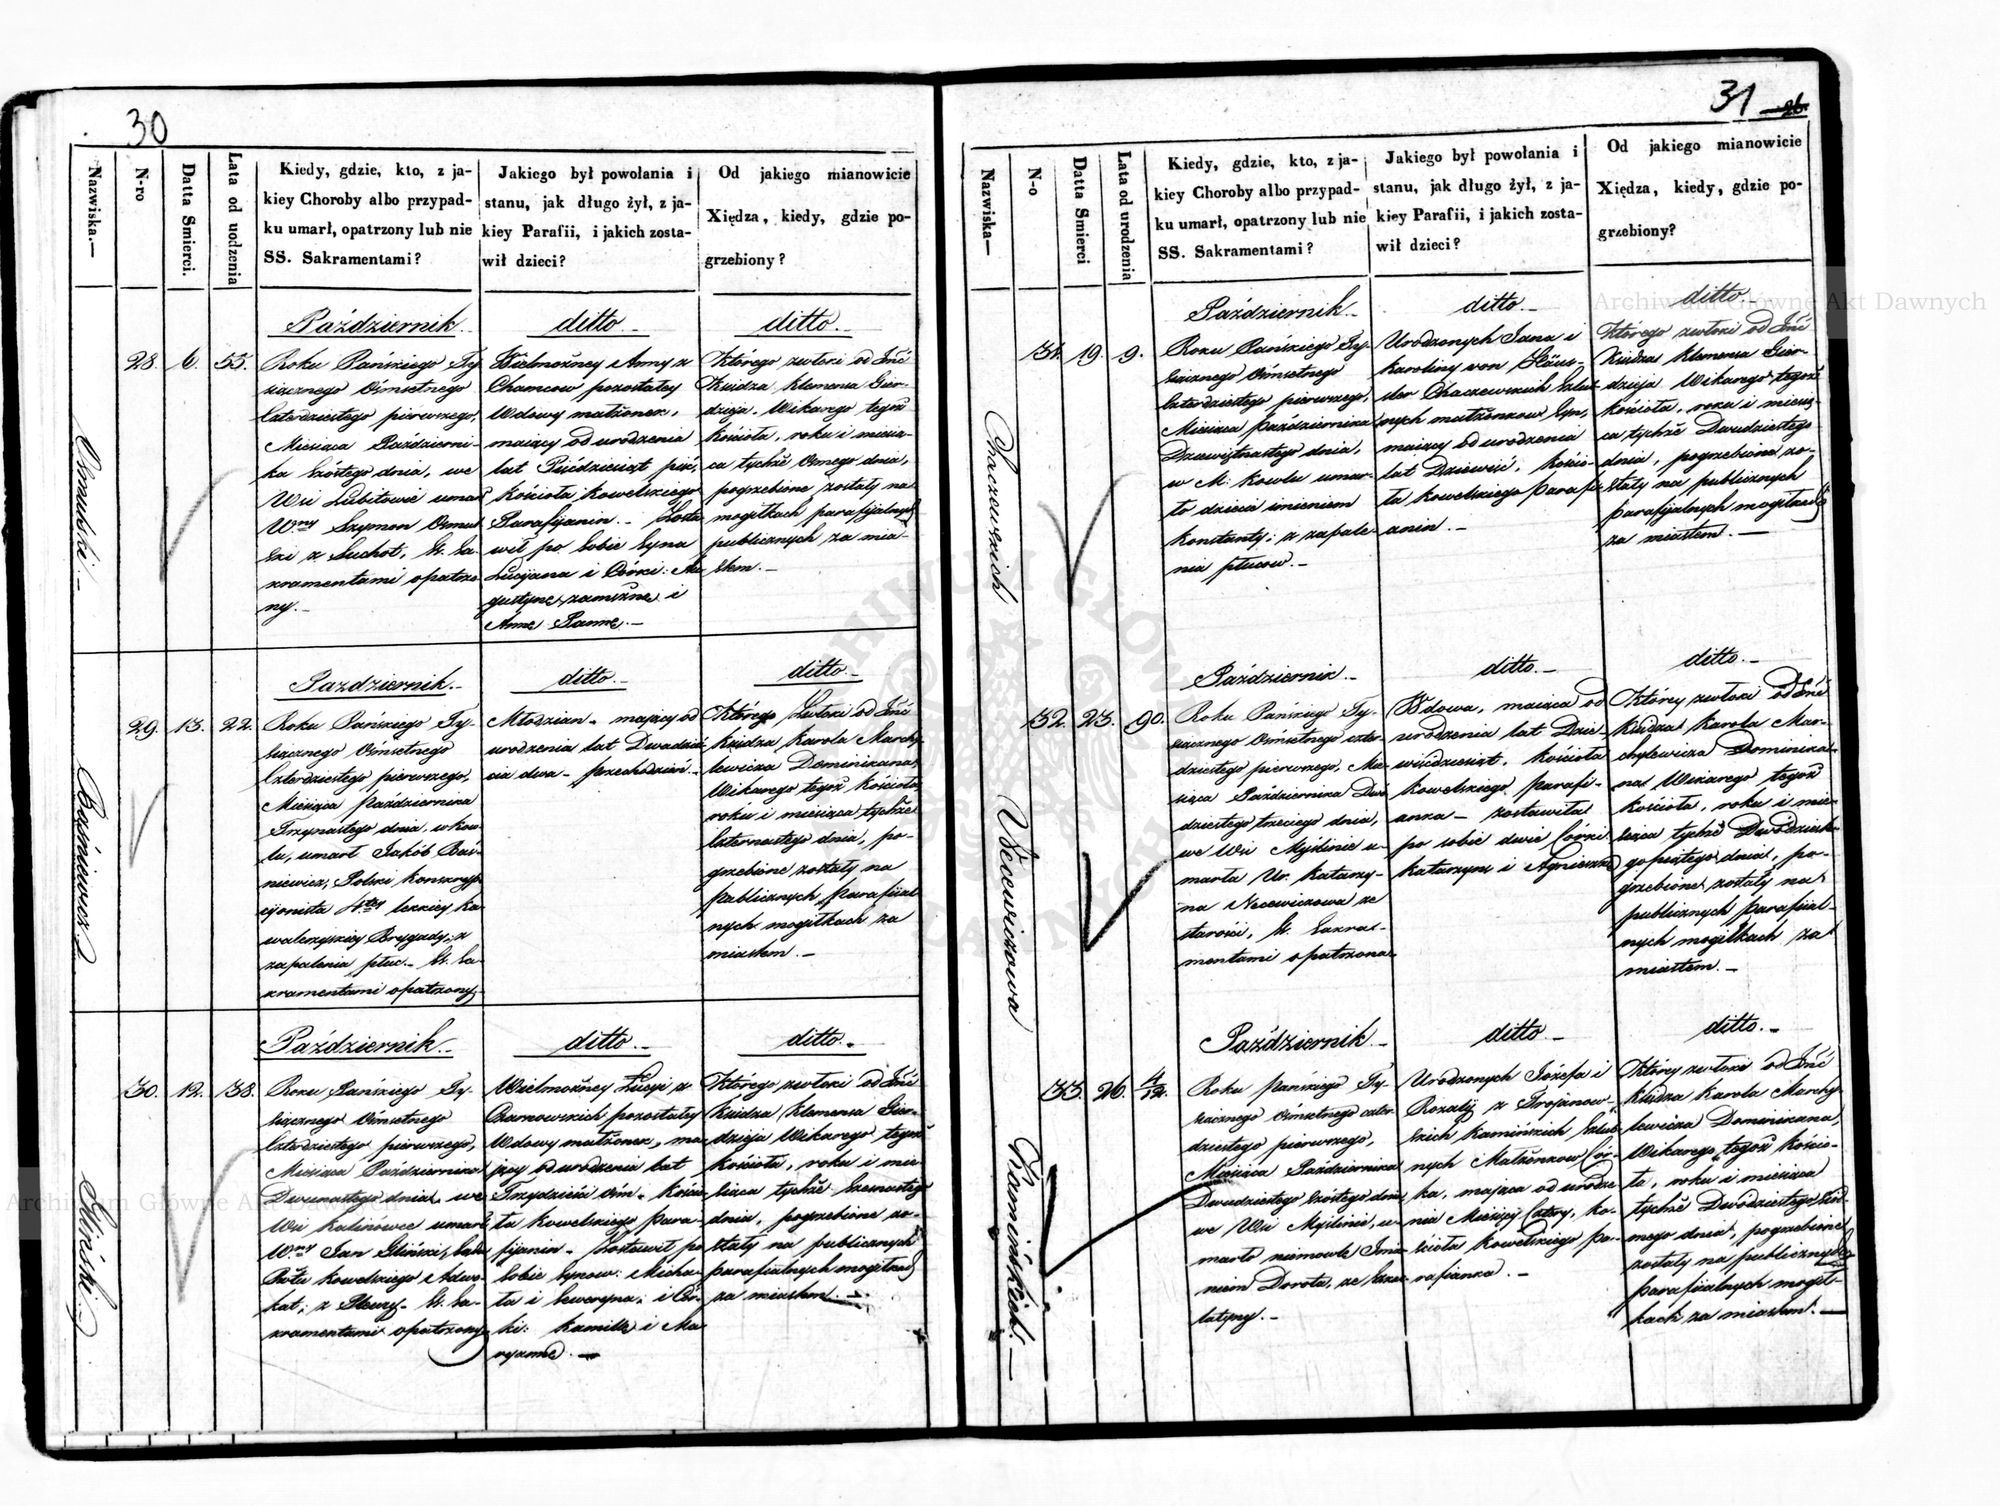 30
Nazwiska.—
N-ro
Datta Smierci.
Lata od uodzenia
Kiedy, gdzie, kto, z ja-
kiey Choroby albo przypad-
ku umarł, opatrzony lub nie
SS. Sakramentami?
Jakiego był powołania i
stanu, jak długo żył, z ja-
kiey Parafii, i jakich zosta-
wił dzieci?
Od jakiego mianowicie
Xiędza, kiedy, gdzie po-
grzebiony?
28.
6.
55.
Październik.
Roku Pańskiego Ty-
siącznego Ośmsetnego
Czterdziestego pierwszego,
Miesiąca Październi-
ka Szóstego dnia, we
Wsi Lubitowie umarł
Wny Szymon
z Suchot, S. Sa-
kramentami opatrzo-
ny.-
ditto.-
Wielmożney Anny z
Chamcow pozostałey
Wdowy małżonek,
maiący od urodzenia
lat Pięćdziesiąt pięć,
Kościoła Kowelskiego
Parafijanin.- Zosta
wił po Sobie Syna
Łucijana i Córki: Au
gustynę zamężnę i
Annę Pannę.-
ditto.-
Którego zwłoki od Jmć
Xiędza Klemensa Gier-
dzieja Wikarego tegoż
Kościoła, roku i miesią-
ca tychże Osmego dnia,
pogrzebione zostały na
mogiłkach parafijalnych
publicznych za mia-
stem.-
29.
13.
22.
Baśniewicz
Pazdziernik.-
Roku Pańskiego Ty-
siącznego Ośmsetnego
Czterdziestego pierwszego,
Miesiąca Października
Trzynastego dnia, w Kow-
lu, umarł Jakób Baś-
niewicz, Polski Konskryp
cyonista 4tey lekkiey Ka
waleryiskiey Brygady, z
zapalenia płuc.- S. Sa-
kramentami opatrzony.
ditto.-
Młodzian - maiący od
urodzenia lat Dwadzie
ścia dwa -
ditto.-
Którego Zwłoki od Jmć
Xiędza Karola Marchy-
lewicza Dominikana,
Wikarego tegoż Kościoła
roku i miesiąca tychże
Czternastego dnia, po-
grzebione zostały na
Publicznych Parafijal-
nych mogiłkach za
miastem.-
30.
12.
38.
Gliński.-
Październik.-
Roku Pańskiego Ty-
siącznego Ośmsetnego
Czterdziestego pierwszego,
Miesiąca Października
Dwunastego dnia, we
Wsi Kalinówce umarł
Wny Jan Gliński,
Pttu Kowelskiego Adwo-
kat; z S. Sa-
kramentami opatrzony
ditto.-
Wielmożney Łucyi z
Czarnowskich pozostałey
Wdowy małżonek, ma
iący od urodzenia lat
Trzydzieści ośm, Kościo
ła Kowelskiego Para-
fijanin - Zostawił po
Sobie Synow: Micha-
ła i Seweryna; i Cór
ki: Kamillę i Ma
ryannę.-
ditto.-
Którego zwłoki od Jmć
Xiędza Klemensa Gier-
dzieja Wikarego tegoż
Kościoła, roku i mie-
siąca tychże Szesnastego
dnia, pogrzebione zo-
stały na publicznych
parafijalnych mogiłkach
za miastem.-
31
26
Nazwiska—
N-o
Datta Smierci
Lata od urodzenia
Kiedy, gdzie, kto, z ja-
kiey Choroby albo przypad-
ku umarł, opatrzony lub nie
SS. Sakramentami?
Jakiego był powołania i
stanu, jak długo żył, z ja-
kiey Parafii, i jakich zosta-
wił dzieci?
Od jakiego mianowicie
Xiędza, kiedy, gdzie po-
grzebiony?
31.
19.
9.
Chaczewskich
Październik.-
Roku Pańskiego Ty-
siącznego Ośmsetnego
Czterdziestego pierwszego,
Miesiąca Października
Dziewiętnastego dnia,
w M: Kowlu umar-
ło dziecie imieniem
Konstanty; z zapale-
nia płucow.-
ditto.-
Urodzonych Jana i
Karoliny von
Chaczewskich Szlub
nych małżonkow Syn,
maiący od urodzenia
lat Dziewięć, Kościo-
ła Kowelskiego Parafi
anin.-
ditto
Którego zwłoki od Jmć
Xiędza Klemensa Gier-
dzieja Wikarego tegoż
Kościoła, roku i miesią-
ca tychże Dwudziestego
dnia, pogrzebione zo-
stały na publicznych
parafijalnych mogiłkach
za miastem.-
32.
23.
90.
Necewiczowa
Październik.-
Roku Pańskiego Ty-
siącznego Ośmsetnego czter-
dziestego pierwszego, Mie-
siąca Października Dwó
dziestego trzeciego dnia,
we Wsi Myślinie u-
marła Ur. Katarzy-
na Necewiczowa ze
starości, S. Sakra-
mentami opatrzona
ditto.-
Wdowa, maiąca od
urodzenia lat Dzie-
więćdziesiąt, Kościoła
Kowelskiego parafi-
anka - zostawiła
po sobie dwie Córki
Katarzynę i Agnieszkę
ditto.-
Którey zwłoki od Jmć
Xiędza Karola Mar-
chylewicza Dominika-
na Wikarego tegoż
Kościoła, roku i mie-
siąca tychże Dwódzieste-
go piątego dnia, po-
grzebione zostały na
publicznych Parafijal-
nych mogiłkach za
miastem.-
33.
26.
4/12.
Kamińskich.-
Październik.-
Roku Pańskiego Ty-
siącznego Ośmsetnego czter-
dziestego pierwszego,
Miesiąca Października
Dwudziestego Szóstego dnia
we Wsi Myślinie, u-
marło niemowle Imie-
niem Dorota, ze Szkar-
latyny.-
ditto.-
Urodzonych Józefa i
Rozalij z Trojanow-
skich Kamińskich Szlub
nych Małżonkow Cór-
ka, maiąca od urodze-
nia Miesięcy Cztery, Ko-
ścioła Kowelskiego pa-
rafianka.-
ditto.-
Którey zwłoki od Jmć
Xiędza Karola Marchy-
lewicza Dominikana,
Wikarego tegoż Kościo-
ła, roku i miesiąca
tychże Dwódziestego Siód-
mego dnia, pogrzebione
zostały na publicznych
parafijalnych mogił-
kach za miastem.-
Archiwum Główne Akt Dawnych
Archiwum Główne Akt Dawnych